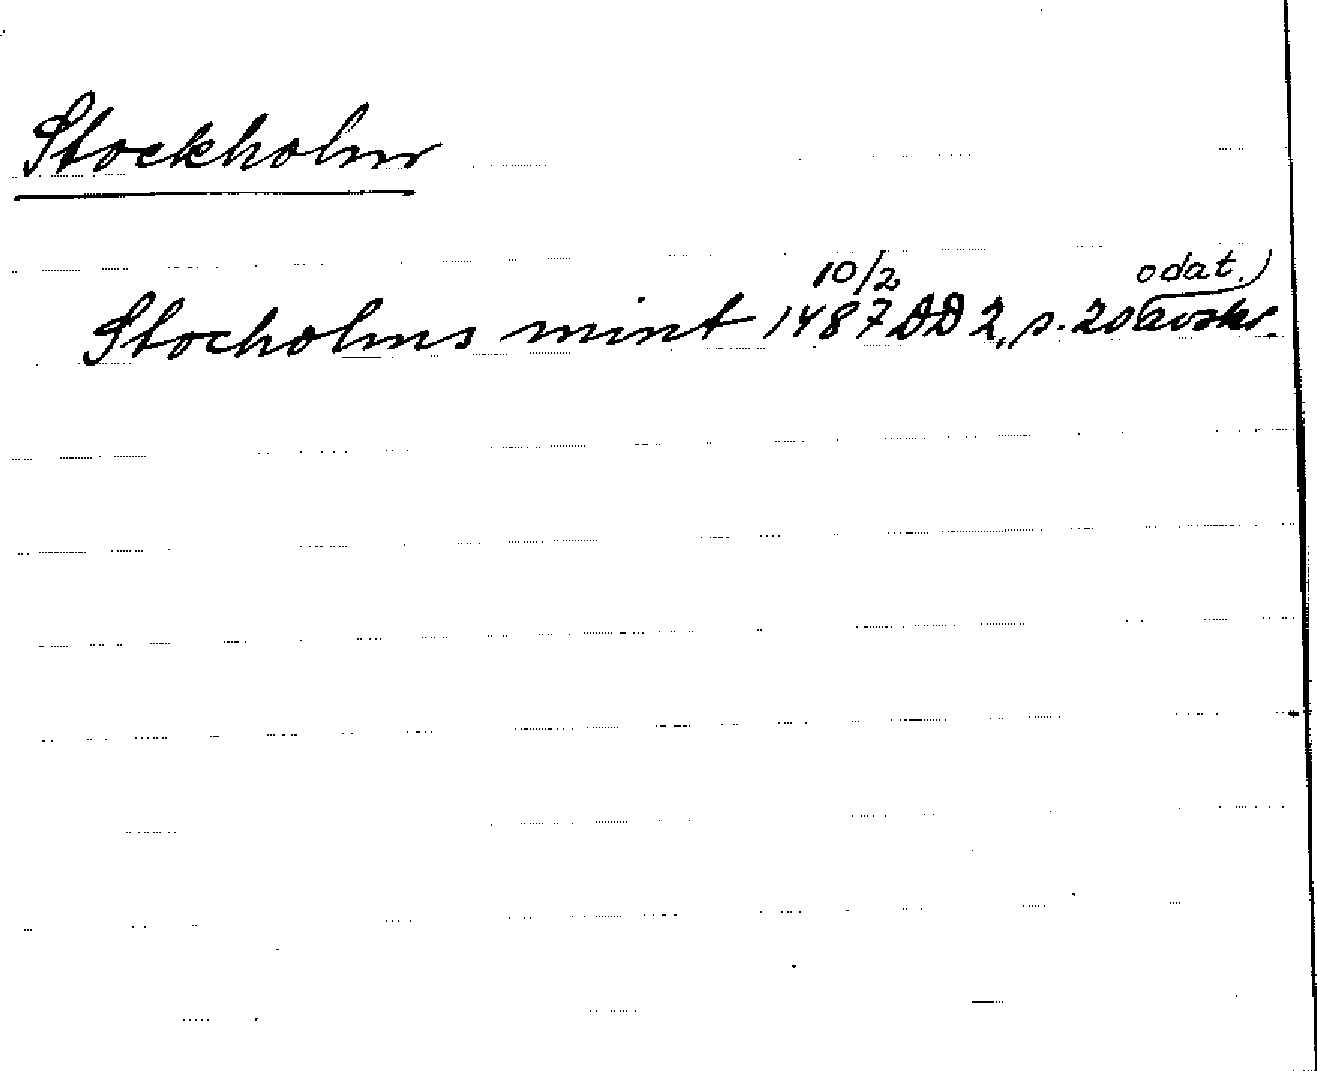 Stockholm
Stocholms mint 10/2 1487 DD 2, s. 20 (odat. avskr.